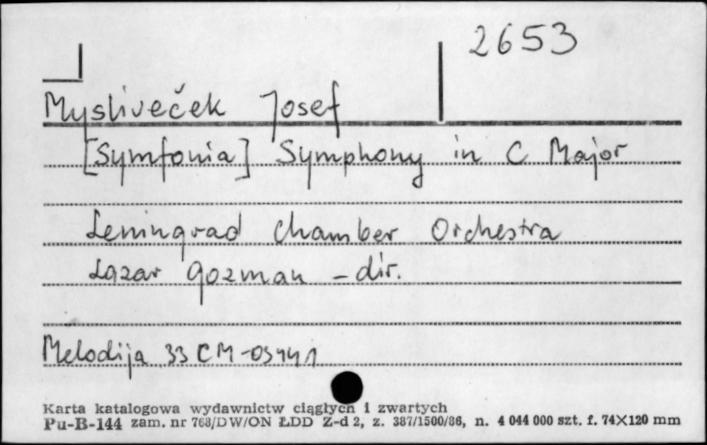 2653
Mysliveček Josef
[Symfonia] Symphony in C Major
Leningrad Chamber Orchestra
Lazar Gozman - dir.
Melodija 33 CM-
Karta katalogowa wydawnictw ciągłych i zwartych
Pu-B-144 zam. nr 768/DW/ON ŁDD Z-d 2, z. 387/1500/86, n. 4 044 000 szt. f. 74X120 mm